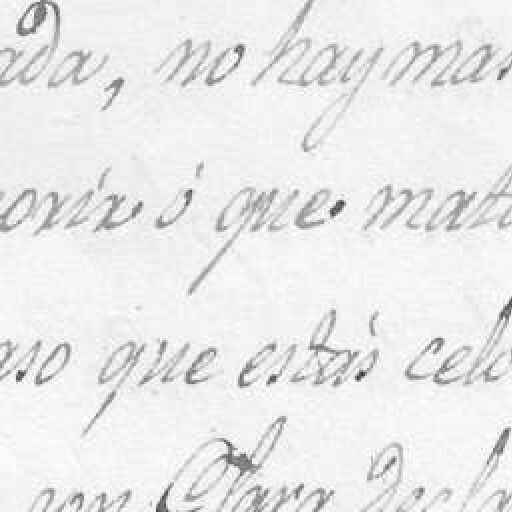 ada, no hay mas
orir ó que mat
aso que estás celo
con Clara decla